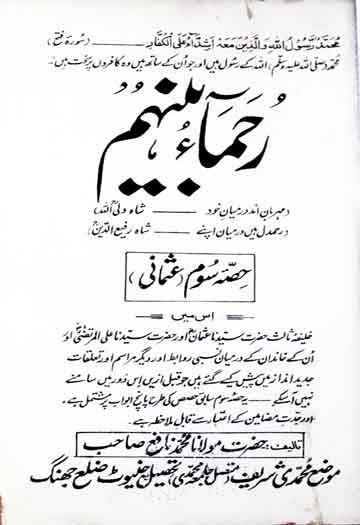 محمد رسول اللہ والذین معہ اشداء علی الکفار (سورۂ فتح)
محمد (صلی اللہ علیہ وسلم) اللہ کے رسول ہیں اور جو اُن کے ساتھ ہیں وہ کافروں پر سخت ہیں۔
رُحَمَآءُ بَیْنَہُمْ
(مہربان اند درمیان خود ——— شاہ ولی اللہؒ)
(رحمدل ہیں درمیان اپنے ——— شاہ رفیع الدینؒ)
حِصّہ سوم (عثمانی)
اس میں
خلیفۂ ثالث حضرت سیدنا عثمانؓ اور حضرت سیدنا علی المرتضیٰؓ اور
اُن کے خاندان کے درمیان نسبی روابط اور دیگر مراسم اور تعلقات
جدید انداز میں پیش کیے گئے ہیں جو قبل ازیں اِس دَور میں سامنے
نہیں آسکے — یہ حصہ سوم سابق حصص کی طرح پانچ ابواب پر مشتمل ہے۔
اور جدتِ مضامین کے اعتبار سے قابل ملاحظہ ہے۔
تالیف: حضرت مولانا محمد نافع صاحب
موضع محمدی شریف (متصل جامعہ محمدی) تحصیل چنیوٹ ضلع جھنگ